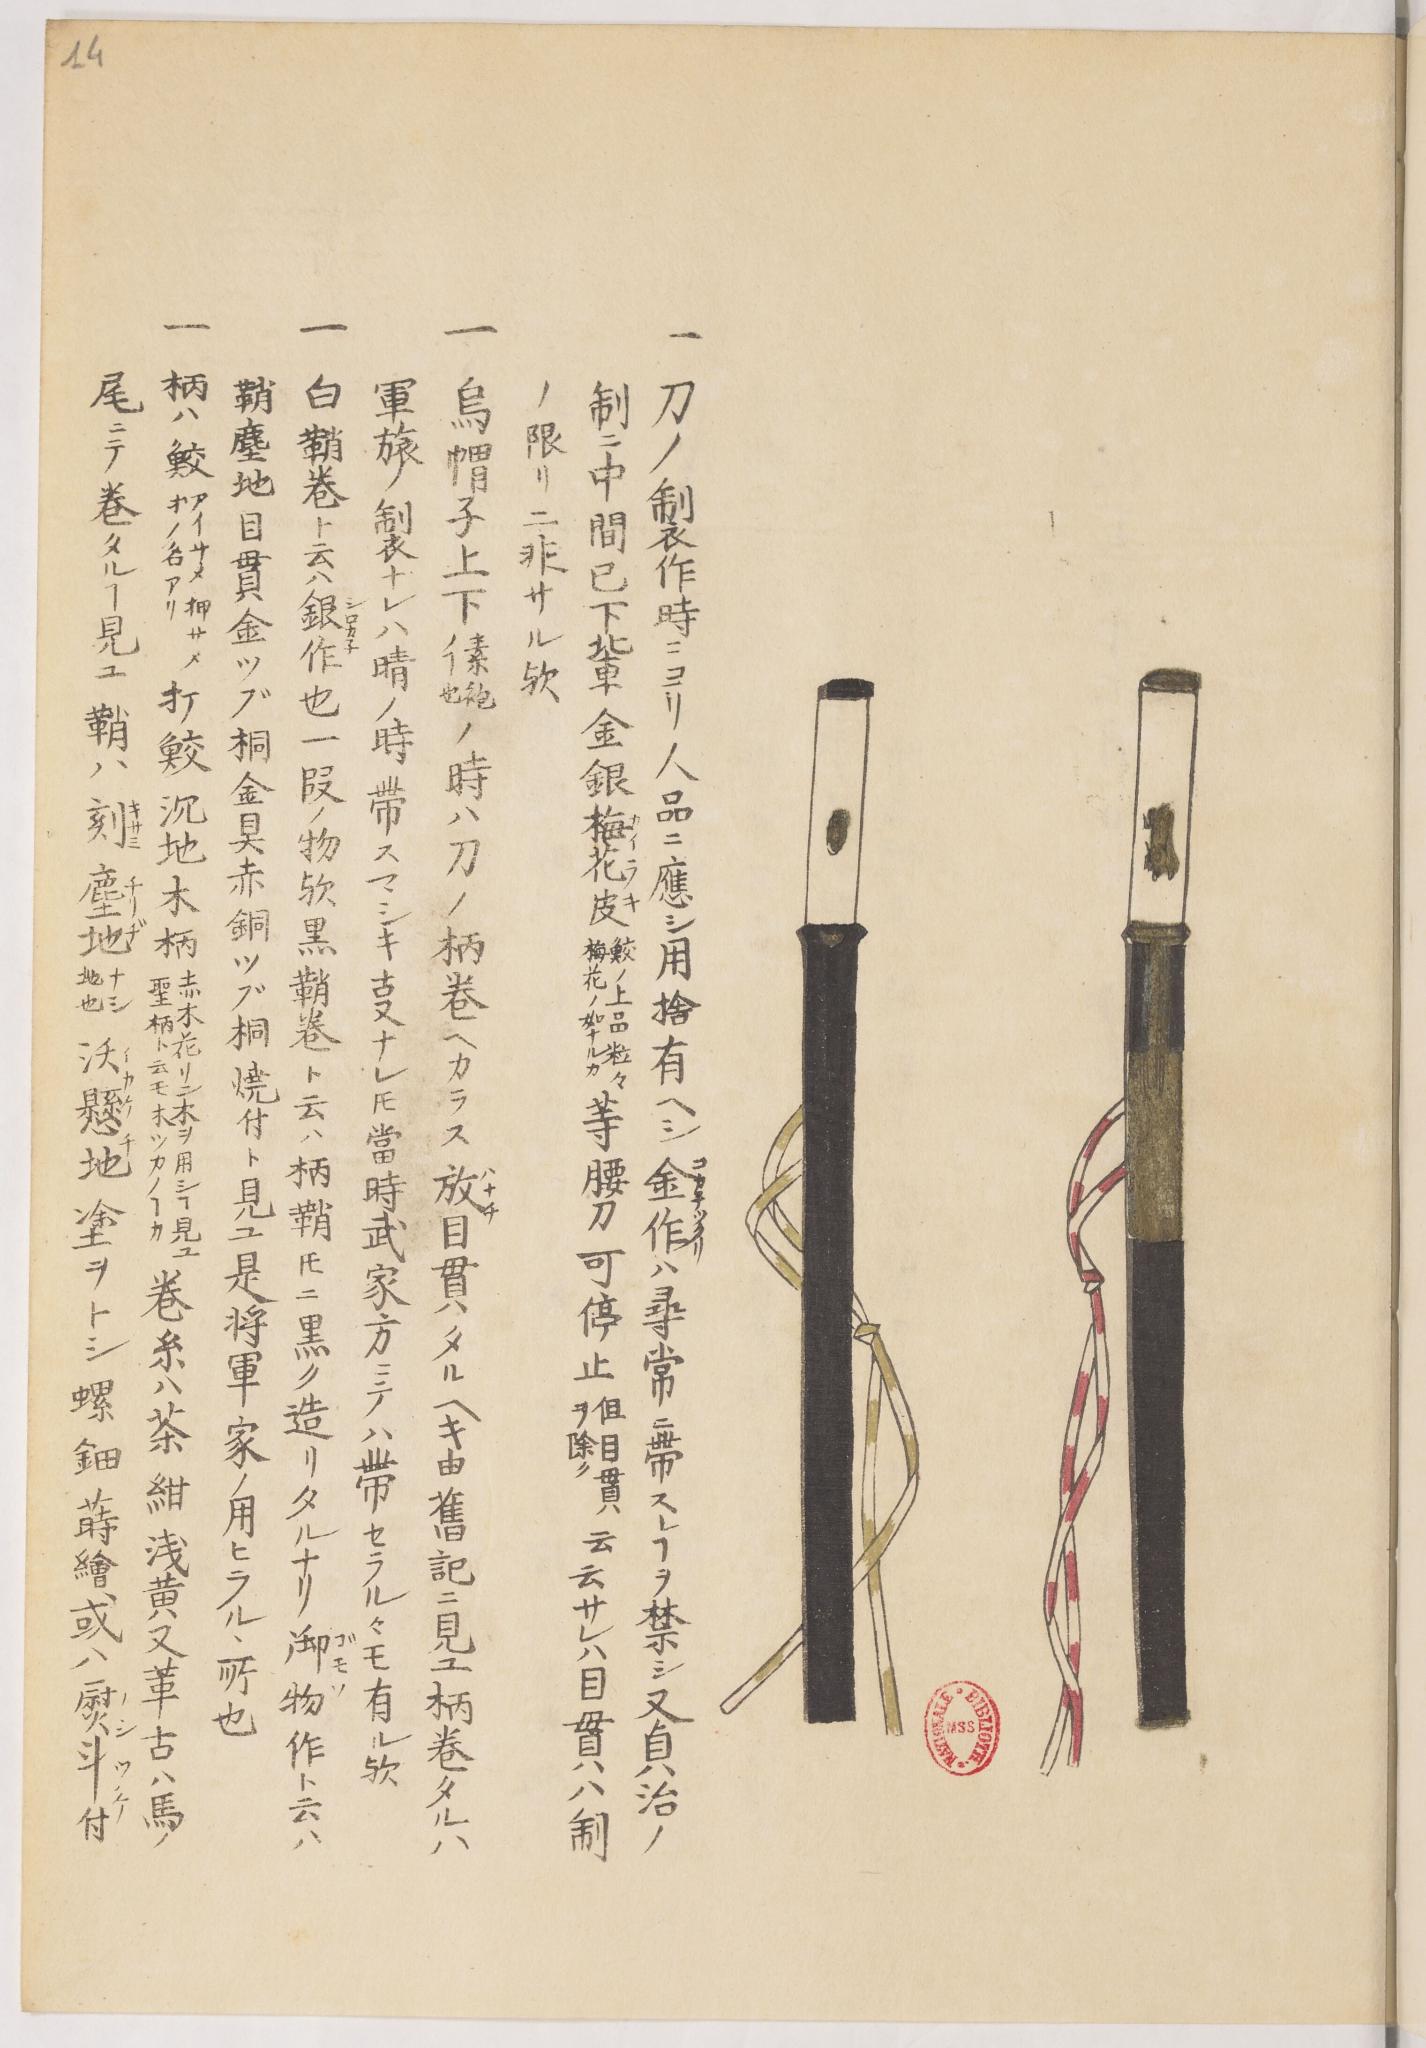 14
一 刀ノ製作時ニヨリ人品ニ應シ用捨有ヘシ金作ハ尋常ニ帶スルヿヲ禁シ又貞治ノ
コカネツクリ
制ニ中間已下輩金銀梅花皮鮫ノ上品粒々梅花ノ如ナルカ等腰刀可停止但目貫ヲ除ク云云サレハ目貫ハ制
カイラキ
ノ限リニ非サル欤
一 烏帽子上下素袍ノヿ也ノ時ハ刀ノ柄巻ヘカラス放目貫ハタルヘキ由舊記ニ見ユ柄巻タルハ
ハナチ
軍旅ノ製ナレハ晴ノ時帶スマシキ亥ナレ𪜈當時武家方ニテハ帶セラルヽモ有ル欤
一 白鞘巻ト云ハ銀作也一段ノ物欤黒鞘巻ト云ハ柄鞘𪜈ニ黒ク造リタルナリ御物作ト云ハ
シロカネ
ゴモツ
鞘塵地目貫金ツブ桐金具赤銅ツブ桐焼付ト見ユ是将軍家ノ用ヒラルヽ所也
一 柄ハ鮫アイサメ押サメオノ名アリ打鮫沉地木柄赤木花リニ木ヲ用シヿ見ユ聖柄ト云モ木ツカノヿカ巻糸ハ茶紺浅黄又革古ハ馬ノ
尾ニテ巻タルヿ見ユ鞘ハ刻塵地ナシ地也沃懸地塗ヲトシ螺鈿蒔繪或ハ熨斗付
キサミ
チリヂ
イカケチ
ノシツケ
BIBLIOTH. NATIONALE MSS